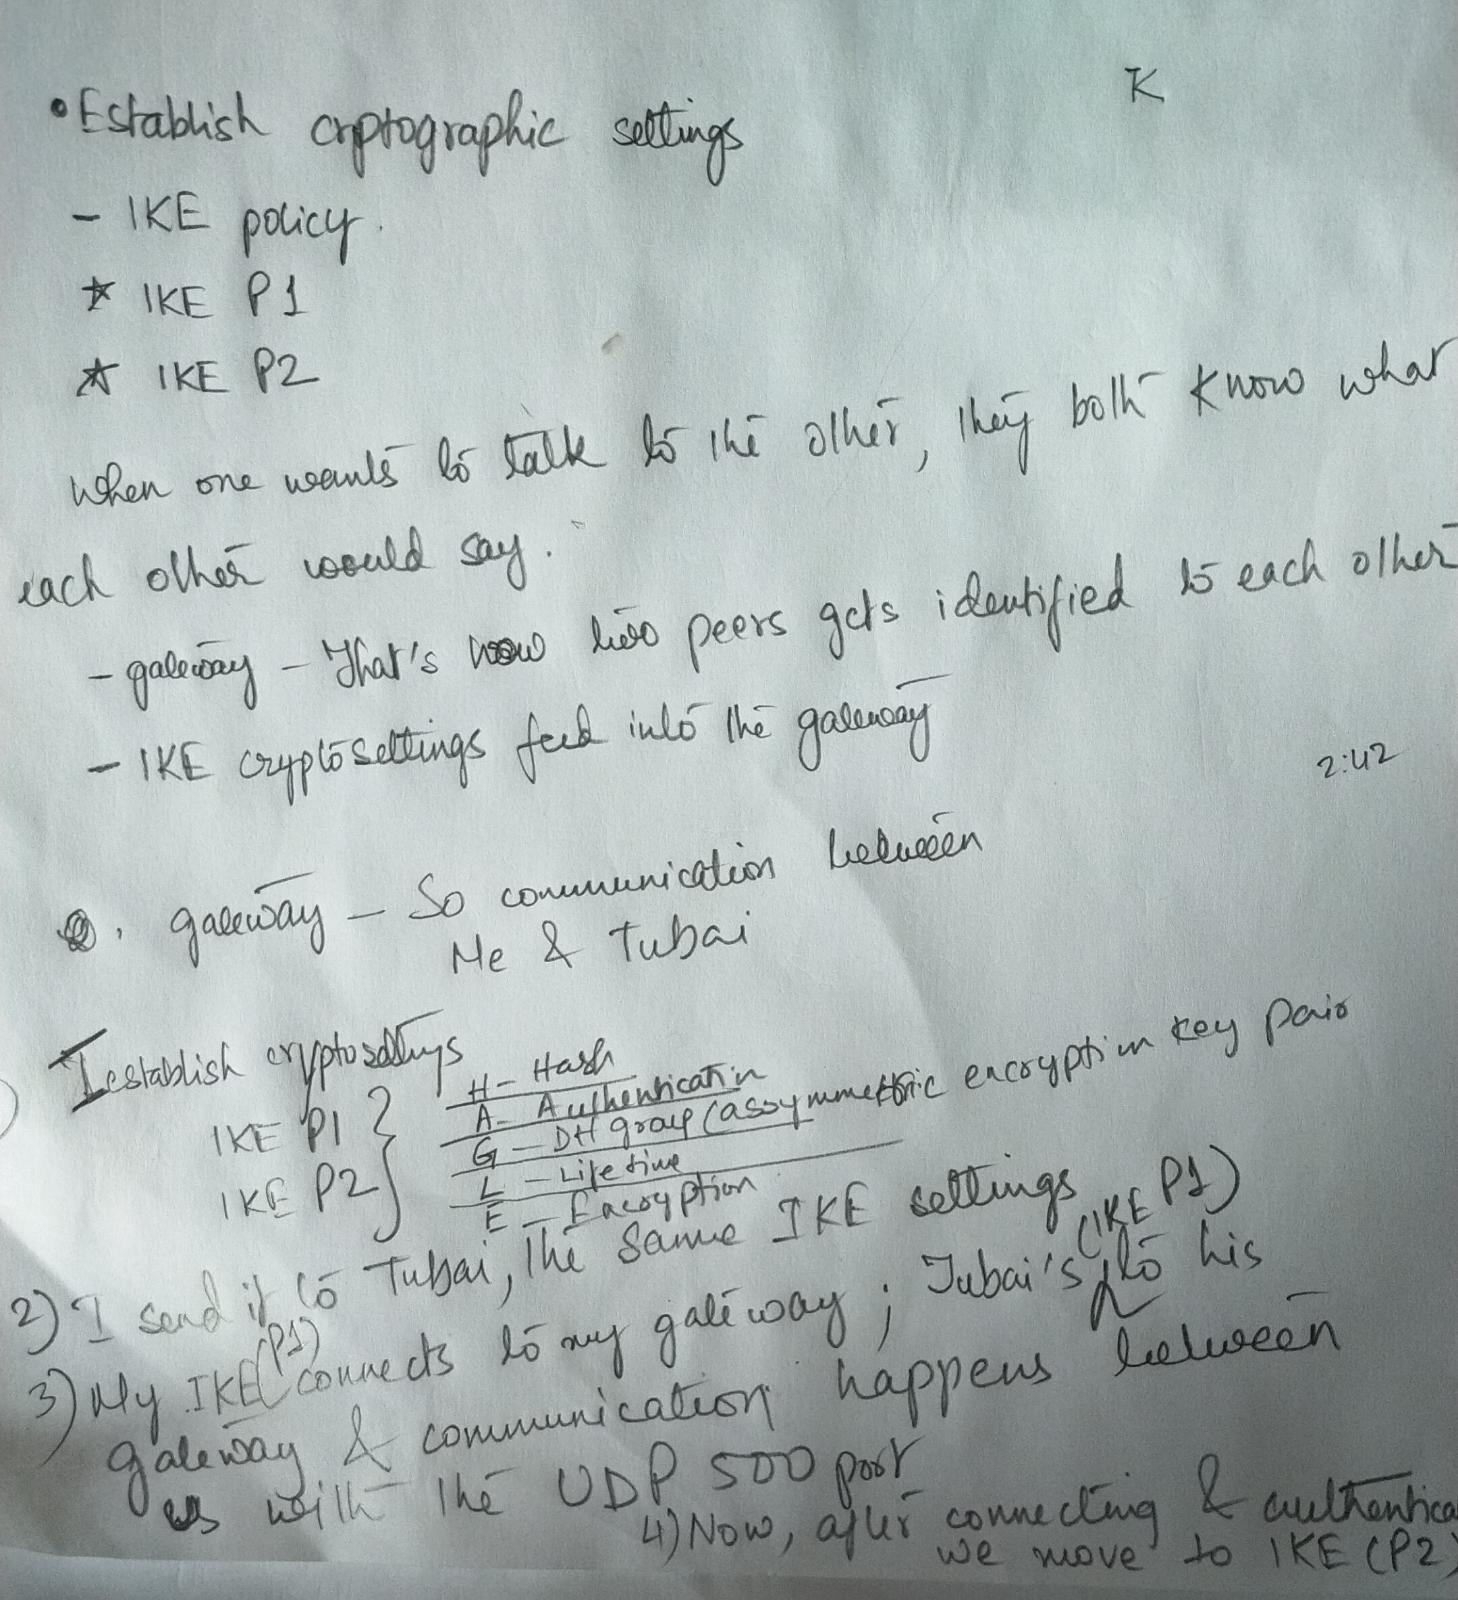 K
• Establish cryptographic settings
- IKE policy.
* IKE P1
* IKE P2
When one wants to talk to the other, they both know what
each other would say.
- gateway - That's how two peers gets identified to each other
- IKE cryptosettings feed into the gateway
2:42
gateway - So communication between
Me & Tubai
establish cryptosettings
H - Hash
A - Authentication
IKE P1
G - DH group (assymmetric encryption key pair
L - Lifetime
IKE P2
E - Encryption
2) I send it to Tubai, the same IKE settings
3) My IKE (P1) connects to my gateway; Tubai's (IKE P1) to his
gateway & communication happens between
us with the UDP 500 port
4) Now, after connecting & authentica
we move to IKE (P2)